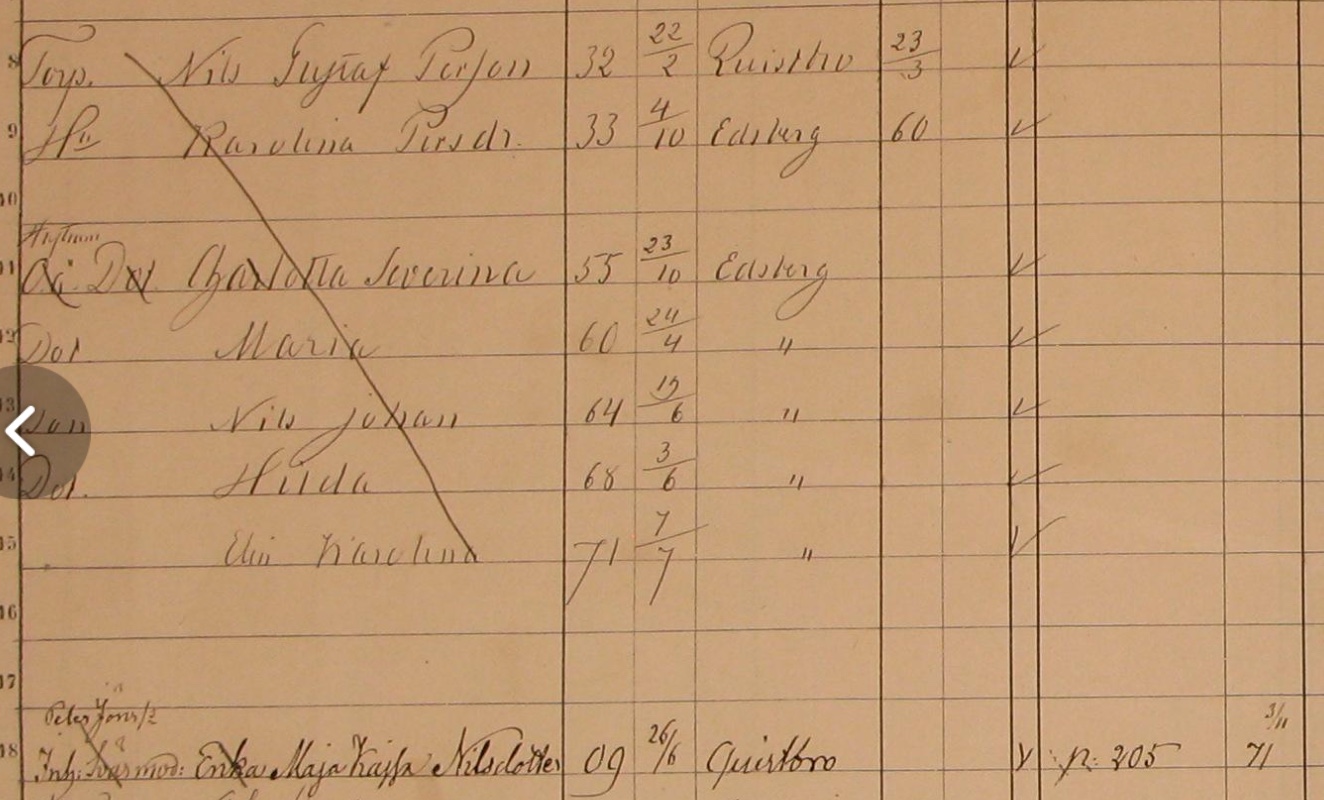 8 Torp. Nils Gustaf Persson 32 22/2 Quistbro 23/3
9 Hu Karolina Persdr. 33 4/10 Edsberg 60
10
11 Dot Charlotta Severina 55 23/10 Edsberg
12 Dot Maria 60 24/4 "
13 Son Nils Johan 64 /6 "
14 Dot. Hilda 68 3/6 "
15 Karolina 71 7/7 "
16
17
Peter 3/11
18 Inh: Enka Maja Kajsa Nilsdotter 09 26/6 Quistbro p. 205 71